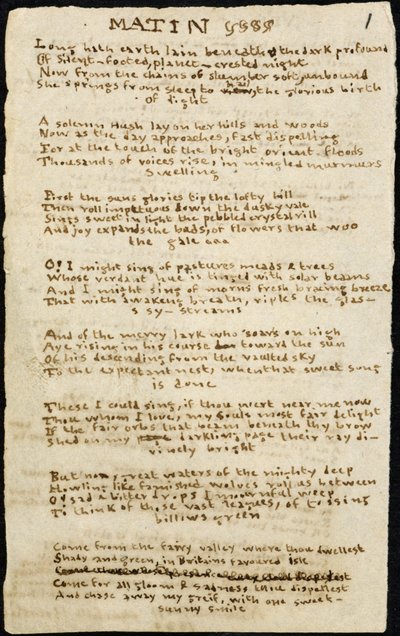 MATIN
1
Long hath earth lain beneath the dark profound
Of silent-footed, planet-crested night
Now from the chains of slumber soft unbound
She springs from sleep to hail, the glorious birth
of dight
A solemn Hush lay on her hills and woods
Now as the day approaches, fast dispelling
For at the touch of the bright orient floods
Thousands of voices rise, in mingled murmurs
swelling
First the suns glories tip the lofty hill
Then roll impetuous down the dusky vale
Sings sweet in light the pebbled crystal rill
And joy expands the buds, of flowers that woo
the gale
O! I might sing of pastures meads & trees
Whose verdant hue is tinged with solar beams
And I might sing of morns fresh bracing breeze
That with awakeng breath, riples the glas-
s sy- streams
And of the merry lark who soars on high
Aye rising in his course toward the sun
Of his descending from the vaulted sky
To the expectant nest, when that sweet song
is done
These I could sing, if thou wert near me now
Thou whom I love, my souls most fair delight
If the fair orbs that beam beneath thy brow
Shed on my darkling page their ray di-
vinely bright
But now, great waters of the mighty deep
Howling like famished wolves roll us between
O! sad & bitter drops I mournful weep
To think of those vast leagues, of tossing
billows green
Come from the fairy valley where thou dwellest
Shady and green, in Britains favoured isle
Come for all gloom & sadness thou dispellest
And chase away my greif, with one sweet-
sunny smile